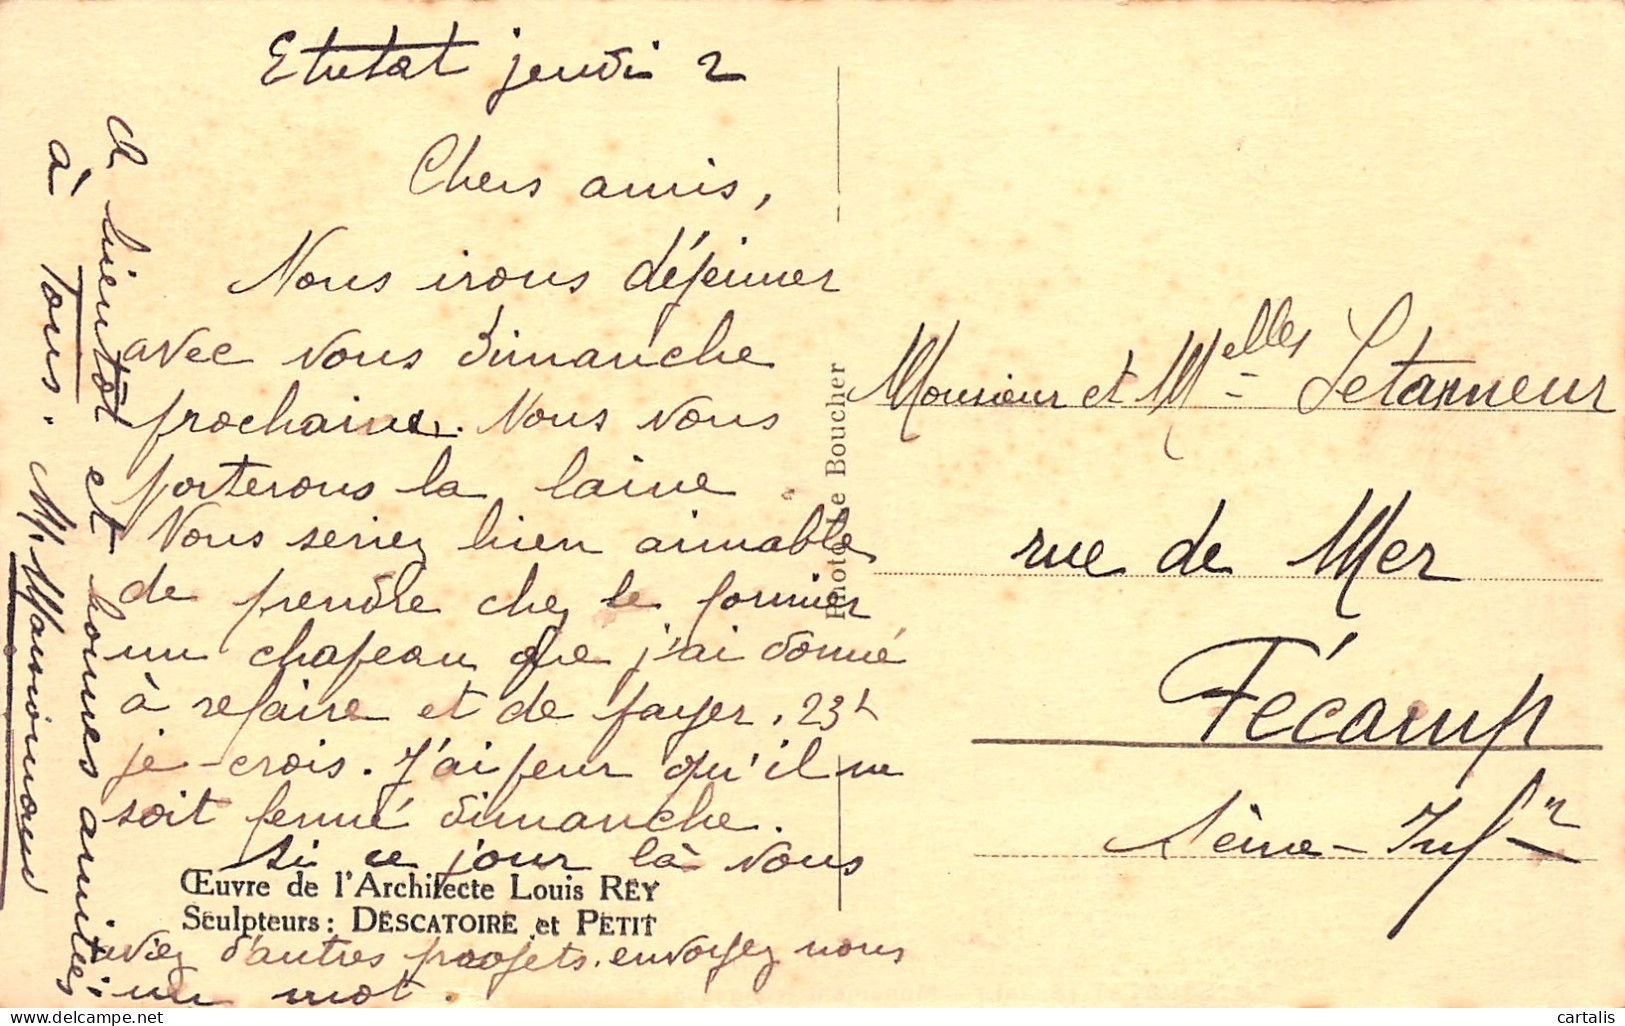 Etretat jeudi 2
Chers amis,
Nous irons déjeuner
avec vous dimanche
prochain. Nous vous
porterons la laine.
Vous seriez bien aimables
de prendre chez le
un chapeau que j'ai donné
à refaire et de payer. 23
je crois. J'ai peur qu'il ne
soit fermé dimanche.
Si ce jour là vous
aviez d'autres projets. envoyez nous
un mot.
A bientôt et bonnes amitiés
à Tous.
Œuvre de l'Architecte Louis REY
Sculpteurs : DESCATOIRE et PETIT
Photo de Boucher
Monsieur et Melles Letarneur
rue de Mer
Fécamp
Seine-Infre
cartalis